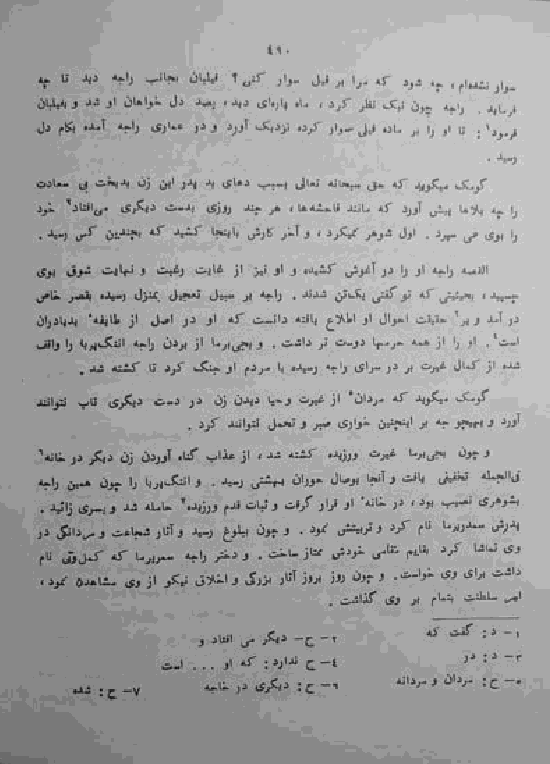 ٤٩٠
سوار نشده‌ام، چه شود که مرا بر فیل سوار کنی؟ فیلبان بجانب راجه دید تا چه
فرماید. راجه چون نیک نظر کرد، ماه پاره‌ای دید، بصد دل خواهان او شد و بفیلبان
فرمود¹: تا او را بر ماده فیلی سوار کرده نزدیک آورد و در عماری راجه آمده بکام دل
رسید.
گوسک میگوید که حق سبحانه تعالی بسبب دعای بد پدر این زن بدبخت بی سعادت
را چه بلاها پیش آورد که مانند فاحشه‌ها، هر چند روزی بدست دیگری می‌افتاد² خود
را بوی می سپرد. اول شوهر نمیکرد، و آخر کارش باینجا کشید که بچندین کس رسید.
القصه راجه او را در آغوش کشیده و او نیز از غایت رغبت و نهایت شوق بوی
چسپید، بحیثیتی که تو گفتی یک‌تن شدند. راجه بر سبیل تعجیل بمنزل رسیده بقصر خاص
در آمد و بر³ حقیقت احوال او اطلاع یافته دانست که او در اصل از طایفه بدبادران
است⁴. او را از همه حرمها دوست تر داشت. و بجی‌برما از بردن راجه اننگ‌پربا را واقف
شده از کمال غیرت بر در سرای راجه رسیده با مردم او جنگ کرد تا کشته شد.
گوسک میگوید که مردان⁵ از غیرت و حیا دیدن زن در دست دیگری تاب نتوانند
آورد و بهیچوجه بر اینچنین خواری صبر و تحمل نتوانند کرد.
و چون بجی‌برما غیرت ورزیده کشته شد، از عذاب گناه آوردن زن دیگر در خانه⁶
فی‌الجمله تخفیفی یافت و آنجا بوصال حوران بهشتی رسید. و اننگ‌پربا را چون همین راجه
بشوهری نصیب بود، در خانه او قرار گرفت و ثبات قدم ورزیده⁷ حامله شد و پسری زائید.
پدرش سمدربرما نام کرد و تربیتش نمود. و چون ببلوغ رسید و آثار شجاعت و مردانگی در
وی تماشا کرد بقایم مقامی خودش ممتاز ساخت. و دختر راجه سمربرما که کمل‌وتی نام
داشت برای وی خواست. و چون روز بروز آثار بزرگی و اخلاق نیکو از وی مشاهده نمود،
امر سلطنت بتمام بر وی گذاشت.
۱- د: گفت که ۲- ح- دیگر می افتاد و
۳- د: در ٤- ح ندارد: که او ... است
۵- ح: مردان و مردانه ٦- ح: دیگری در خانه ۷- ح: شده